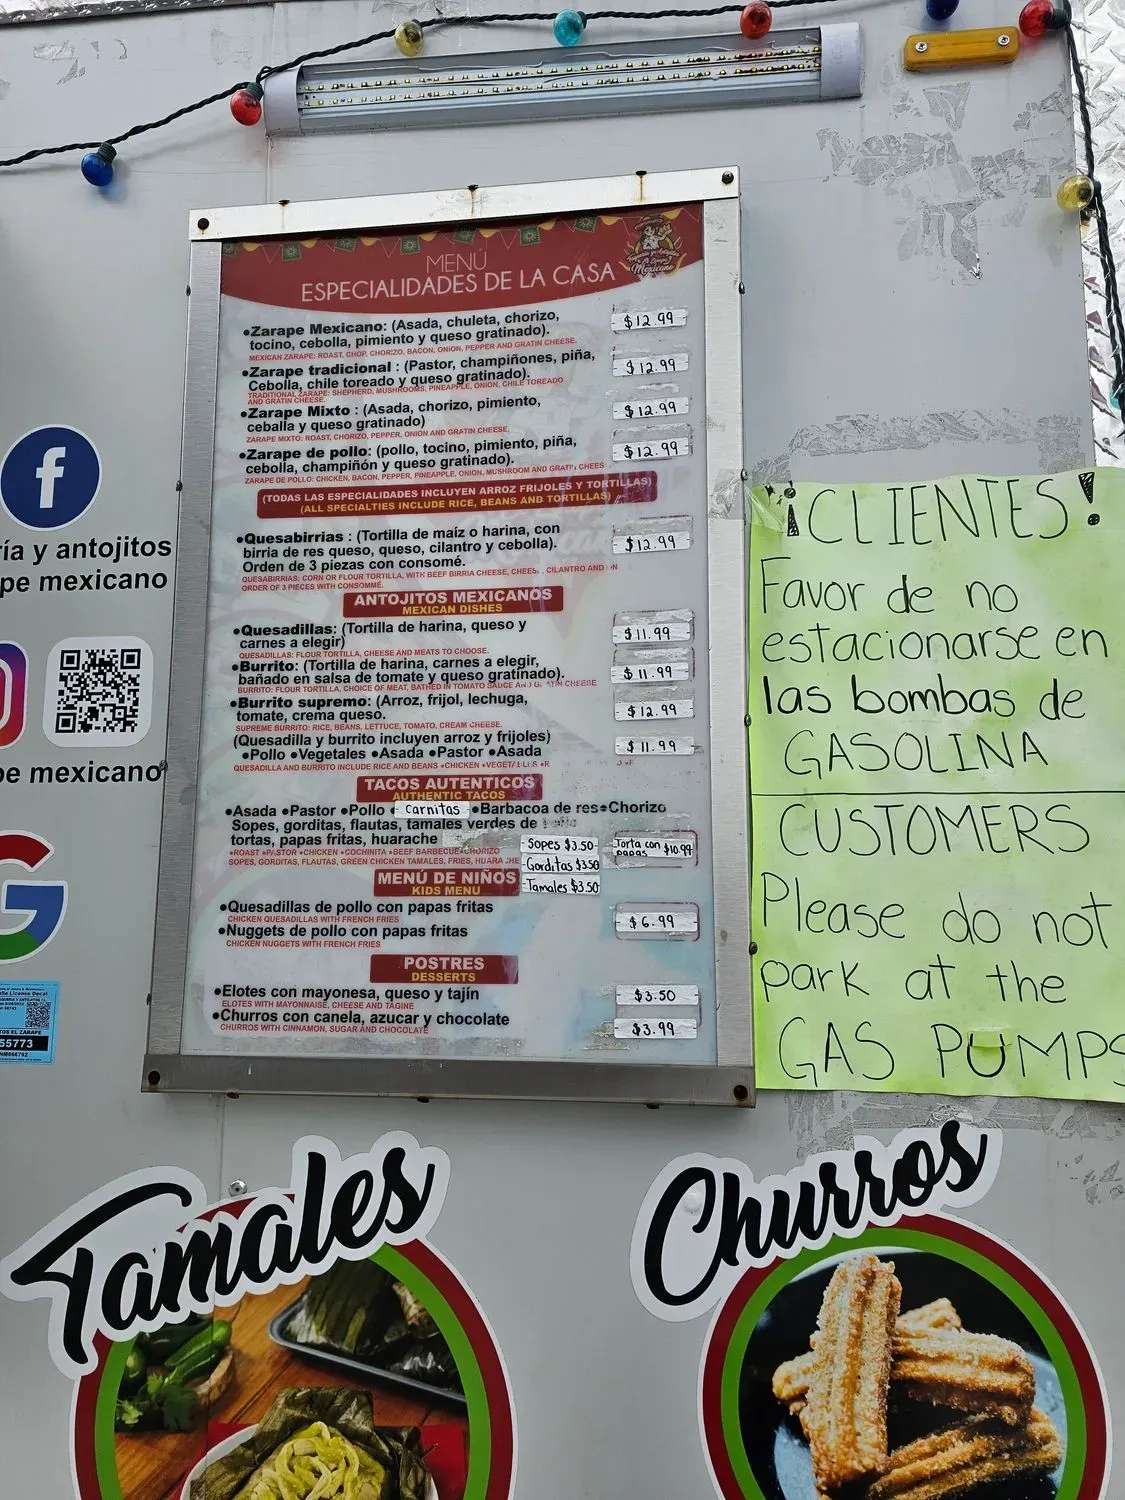 MENÚ
ESPECIALIDADES DE LA CASA
Mexicano
•Zarape Mexicano: (Asada, chuleta, chorizo,
tocino, cebolla, pimiento y queso gratinado).
$12.99
MEXICAN ZARAPE: ROAST, CHOP, CHORIZO, BACON, ONION, PEPPER AND GRATIN CHEESE.
•Zarape tradicional : (Pastor, champiñones, piña,
Cebolla, chile toreado y queso gratinado).
$12.99
TRADITIONAL ZARAPE: SHEPHERD, MUSHROOMS, PINEAPPLE, ONION, CHILE TOREADO
AND GRATIN CHEESE.
•Zarape Mixto : (Asada, chorizo, pimiento,
ceballa y queso gratinado)
$12.99
ZARAPE MIXTO: ROAST, CHORIZO, PEPPER, ONION AND GRATIN CHEESE.
•Zarape de pollo: (pollo, tocino, pimiento, piña,
cebolla, champiñón y queso gratinado).
$12.99
ZARAPE DE POLLO: CHICKEN, BACON, PEPPER, PINEAPPLE, ONION, MUSHROOM AND
(TODAS LAS ESPECIALIDADES INCLUYEN ARROZ FRIJOLES Y TORTILLAS)
(ALL SPECIALTIES INCLUDE RICE, BEANS AND TORTILLAS)
•Quesabirrias : (Tortilla de maíz o harina, con
birria de res queso, queso, cilantro y cebolla).
Orden de 3 piezas con consomé.
$12.99
QUESABIRRIAS: CORN OR FLOUR TORTILLA, WITH BEEF BIRRIA CHEESE, CILANTRO AND
ORDER OF 3 PIECES WITH CONSOMMÉ.
ANTOJITOS MEXICANOS
MEXICAN DISHES
•Quesadillas: (Tortilla de harina, queso y
carnes a elegir)
$11.99
QUESADILLAS: FLOUR TORTILLA, CHEESE AND MEATS TO CHOOSE.
•Burrito: (Tortilla de harina, carnes a elegir,
bañado en salsa de tomate y queso gratinado).
$11.99
BURRITO: FLOUR TORTILLA, CHOICE OF MEAT, BATHED IN TOMATO SAUCE AND CHEESE
•Burrito supremo: (Arroz, frijol, lechuga,
tomate, crema queso.
$12.99
SUPREME BURRITO: RICE, BEANS, LETTUCE, TOMATO, CREAM CHEESE.
(Quesadilla y burrito incluyen arroz y frijoles)
•Pollo •Vegetales •Asada •Pastor •Asada
$11.99
QUESADILLA AND BURRITO INCLUDE RICE AND BEANS •CHICKEN
TACOS AUTENTICOS
AUTHENTIC TACOS
•Asada •Pastor •Pollo • Carnitas •Barbacoa de res•Chorizo
Sopes, gorditas, flautas, tamales verdes de
tortas, papas fritas, huarache
•ROAST •PASTOR •CHICKEN •COCHINITA •BEEF BARBECUE•CHORIZO
SOPES, GORDITAS, FLAUTAS, GREEN CHICKEN TAMALES, FRIES, HUARACHE
Sopes $3.50
Gorditas $3.50
Tamales $3.50
Torta con
papas $10.99
MENÚ DE NIÑOS
KIDS MENU
•Quesadillas de pollo con papas fritas
CHICKEN QUESADILLAS WITH FRENCH FRIES
$6.99
•Nuggets de pollo con papas fritas
CHICKEN NUGGETS WITH FRENCH FRIES
POSTRES
DESSERTS
•Elotes con mayonesa, queso y tajín
$3.50
ELOTES WITH MAYONNAISE, CHEESE AND TAGINE
•Churros con canela, azucar y chocolate
$3.99
CHURROS WITH CINNAMON, SUGAR AND CHOCOLATE
f
ía y antojitos
pe mexicano
pe mexicano
G
55773
¡CLIENTES!
Favor de no
estacionarse en
las bombas de
GASOLINA
CUSTOMERS
Please do not
park at the
GAS PUMPS
Tamales
Churros